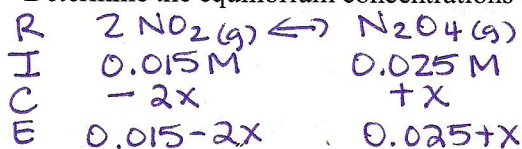 Determine the equilibrium concentrations
R 2 NO2 (g) <-> N2O4 (g)
I 0.015 M 0.025 M
C - 2x + x
E 0.015-2x 0.025+x